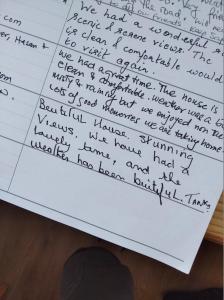 the road, full
friends have
We had a wonderful
scenic & serene views. The
is clean & comfortable would
to visit again.
er, Hasan &
.com
We had a great time. The house is
clean & comfortable. weather was a bit
misty & raining but we enjoyed non the
Lots of good memories we are taking home.
com
Beutiful House. Stunning
Views. We have had a
lovely time, and the
weather has been buitiful. Tanks